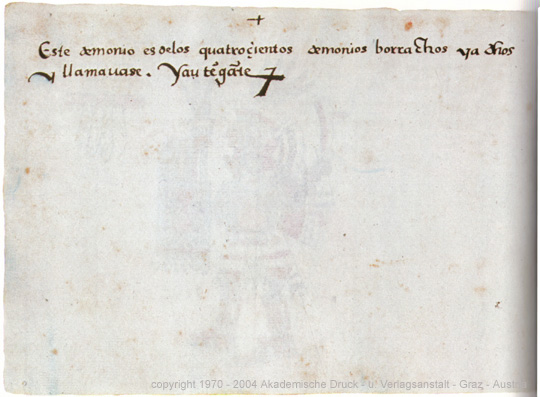 Este demonio es delos quatroçientos demonios borrachos ya dhos
y llamauase. Yau tēcate
copyright 1970 - 2004 Akademische Druck - u. Verlagsanstalt - Graz - Austr